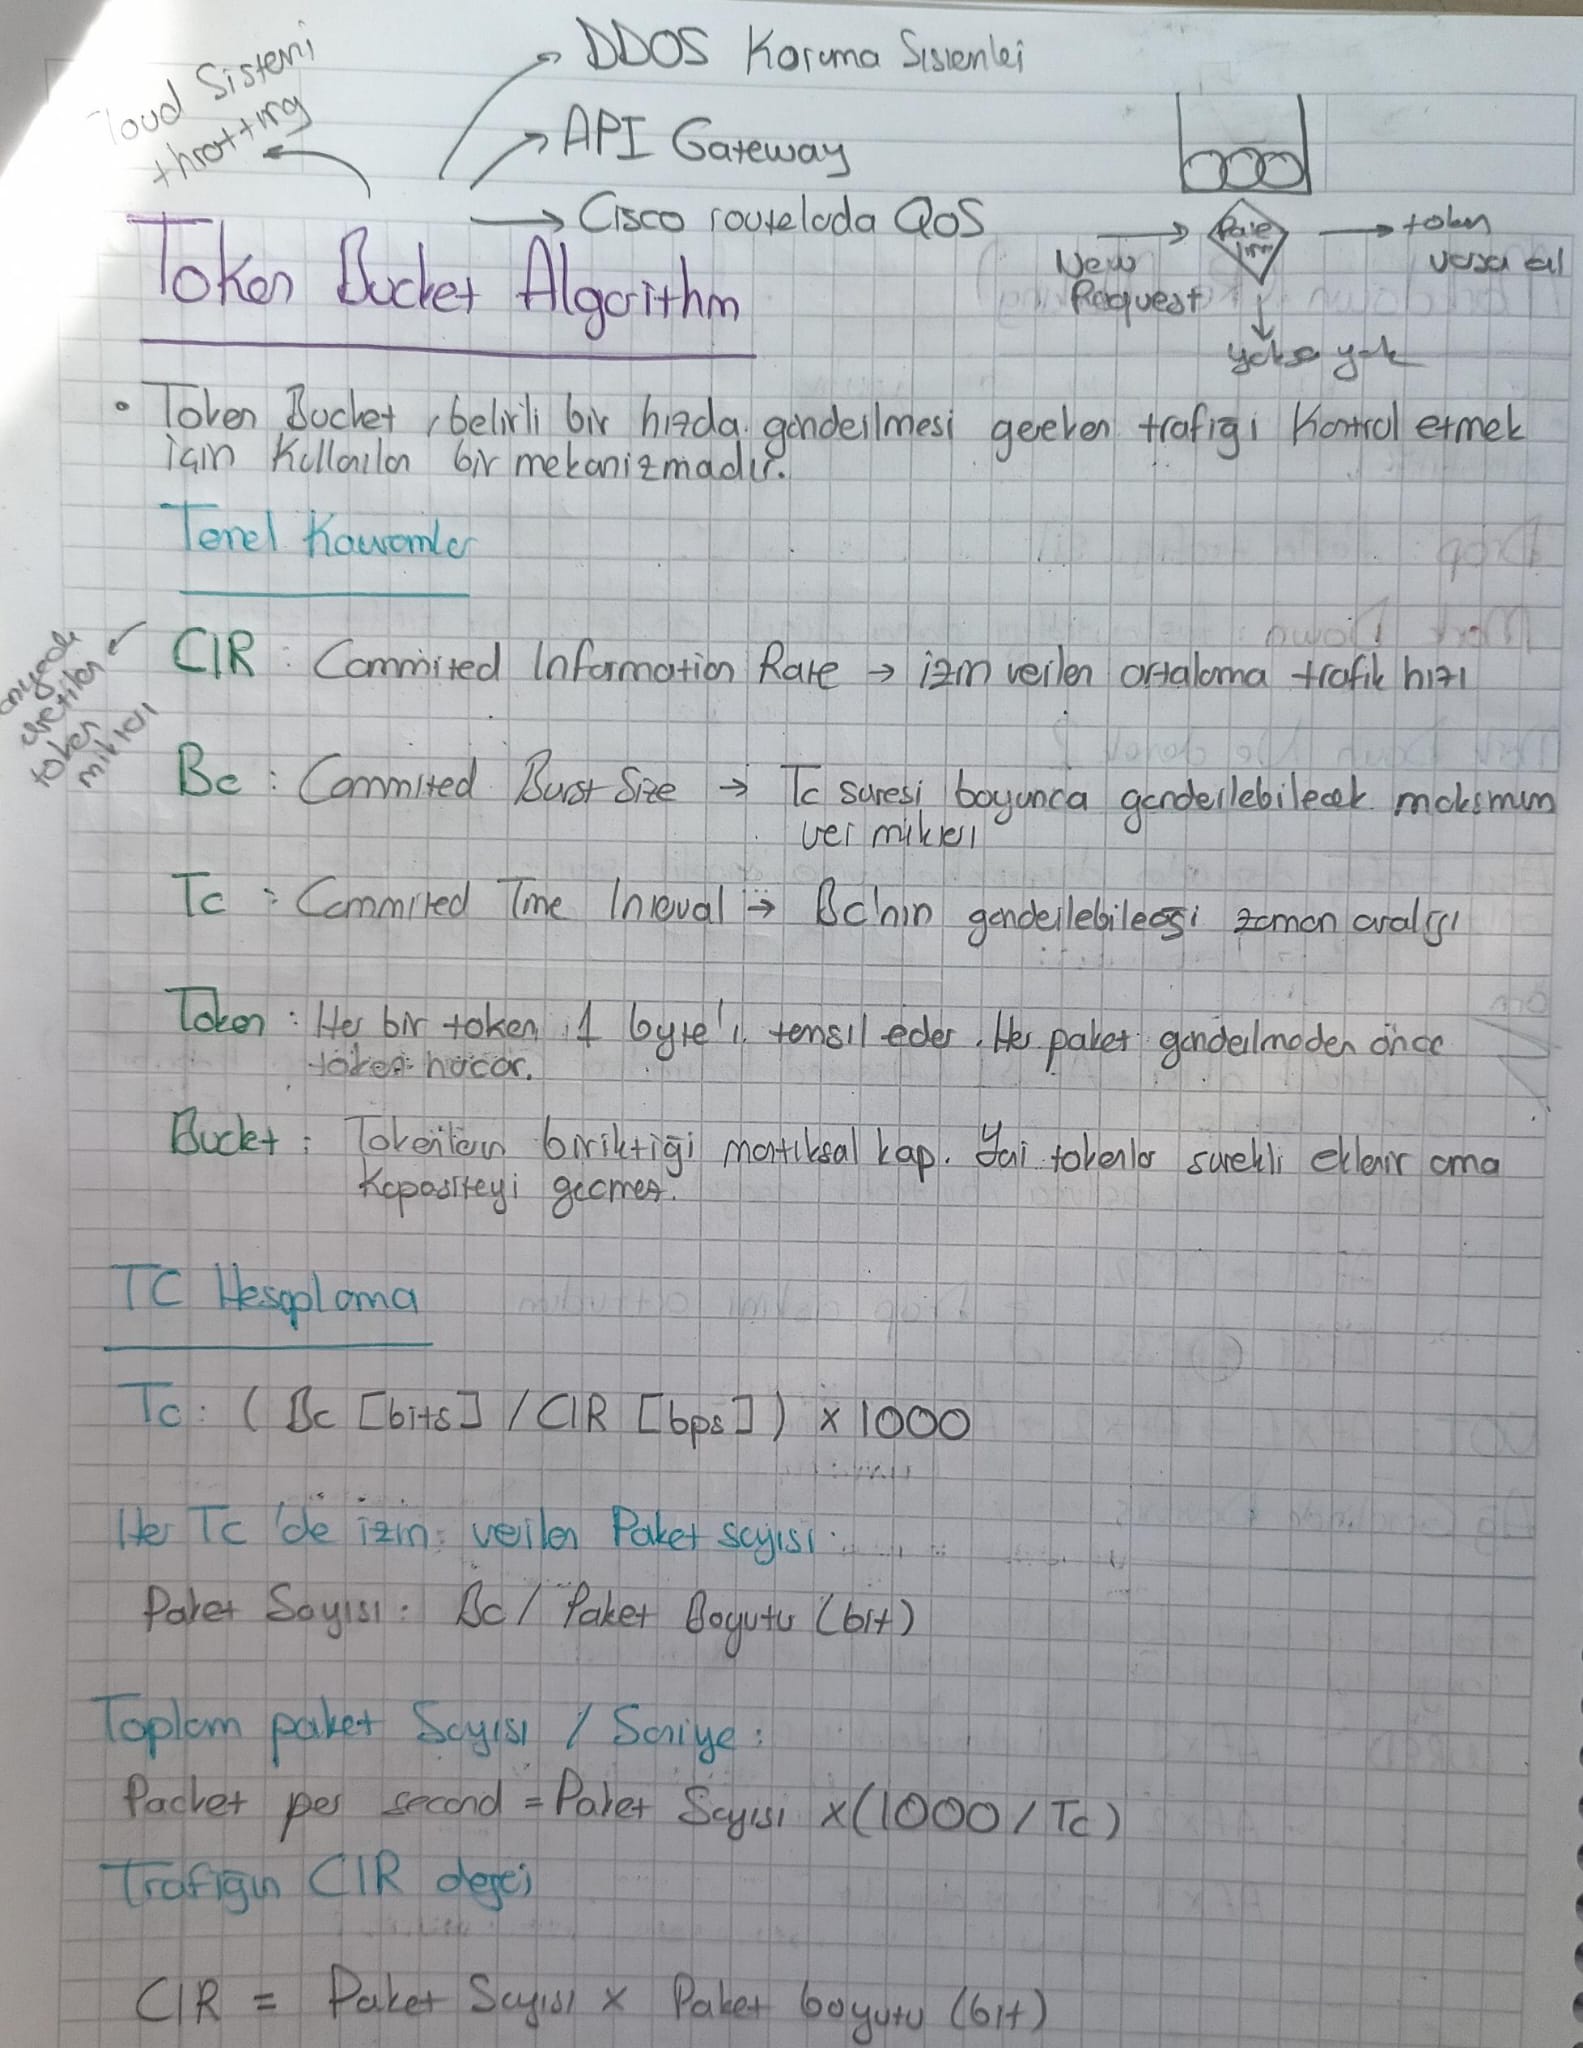 DDOS Koruma Sistemlei
Cloud Sistemi
throtting
API Gateway
Cisco routelada QoS
Token Bucket Algorithm
New
Request
Rate
lim
token
varsa al
yoksa yok
• Token Bucket, belirli bir hızda gönderilmesi gereken trafiği Kontrol etmek
için Kullanılan bir mekanizmadır.
Temel Kavramlar
CIR : Commited Information Rate → izin verilen ortalama trafik hızı
saniyede
üretilen
token
miktarı
Bc : Commited Burst Size → Tc süresi boyunca gönderilebilecek maksimum
veri miktarı
Tc : Commited Time Interval → Bc'nin gönderilebileceği zaman aralığı
Token : Her bir token 1 byte'ı temsil eder. Her paket gönderilmeden önce
token harcar.
Bucket : Tokenların biriktiği mantıksal kap. Yani tokenlar sürekli eklenir ama
Kapasiteyi geçmez.
TC Hesaplama
Tc : ( Bc [bits] / CIR [bps] ) x 1000
Her Tc 'de izin verilen Paket sayısı :
Paket Sayısı : Bc / Paket Boyutu (bit)
Toplam paket Sayısı / Saniye :
Packet per second = Paket Sayısı x (1000 / Tc)
Trafiğin CIR değeri
CIR = Paket Sayısı x Paket boyutu (bit)